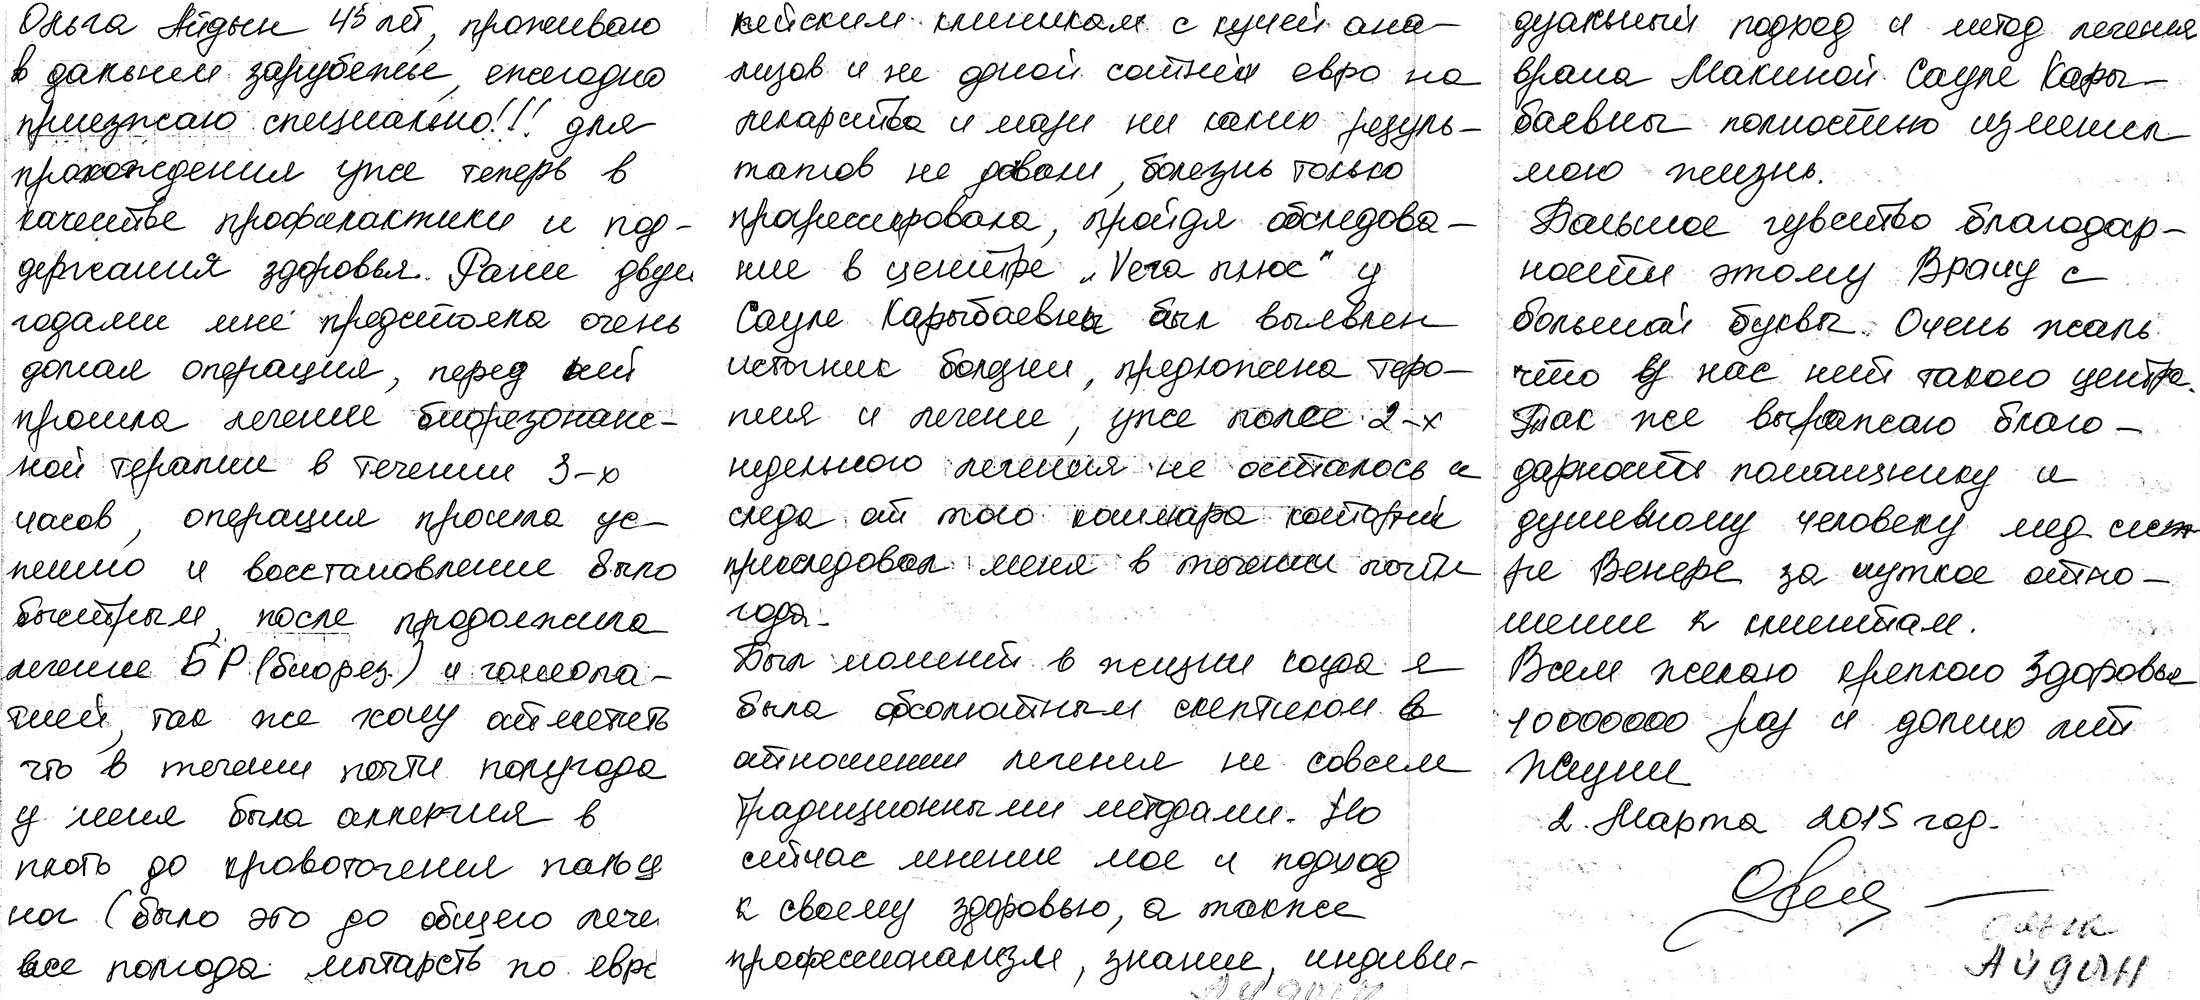 Ольга Айдын 45 лет, проживаю
в дальнем зарубежье, ежегодно
приезжаю специально!!! для
прохождения уже теперь в
качестве профилактики и под-
держания здоровья. Ранее двумя
годами мне предстояла очень
долгая операция, перед ней
прошла лечение биорезонанс-
ной терапии в течении 3-х
часов, операция прошла ус-
пешно и восстановление было
быстрым, после продолжила
лечение БР (биорез.) и гомеопа-
тией, так же хочу отметить
что в течении почти полугода
у меня была аллергия в
плоть до кровоточения пальц
ног (было это до общего лече
все полгода мытарств по евро
пейским клиникам с кучей ана-
лизов и не одной сотней евро на
лекарства и мази ни каких резуль-
татов не давали, болезнь только
прогрессировала, пройдя обследова-
ние в центре "Vera плюс" у
Сауле Карыбаевны был выявлен
источник болезни, предложена тера-
пия и лечение, уже после 2-х
недельного лечения не осталось и
следа от того кошмара который
преследовал меня в течении почти
года.
Был момент в жизни когда я
была абсолютным скептиком в
отношении лечения не совсем
традиционными методами. Но
сейчас мнение мое и подход
к своему здоровью, а также
профессионализм, знание, индиви-
дуальный подход и метод лечения
врача Макиной Сауле Кары-
баевны полностью изменил
мою жизнь.
Большое чувство благодар-
ности этому Врачу с
большой буквы. Очень жаль
что у нас нет такого центра.
Так же выражаю благо-
дарность помощнику и
душевному человеку мед сест
ре Венере за чуткое отно-
шение к клиентам.
Всем желаю крепкого здоровья
10000000 раз и долгих лет
жизни
2. Марта 2015 год.
Ольга
Айдын